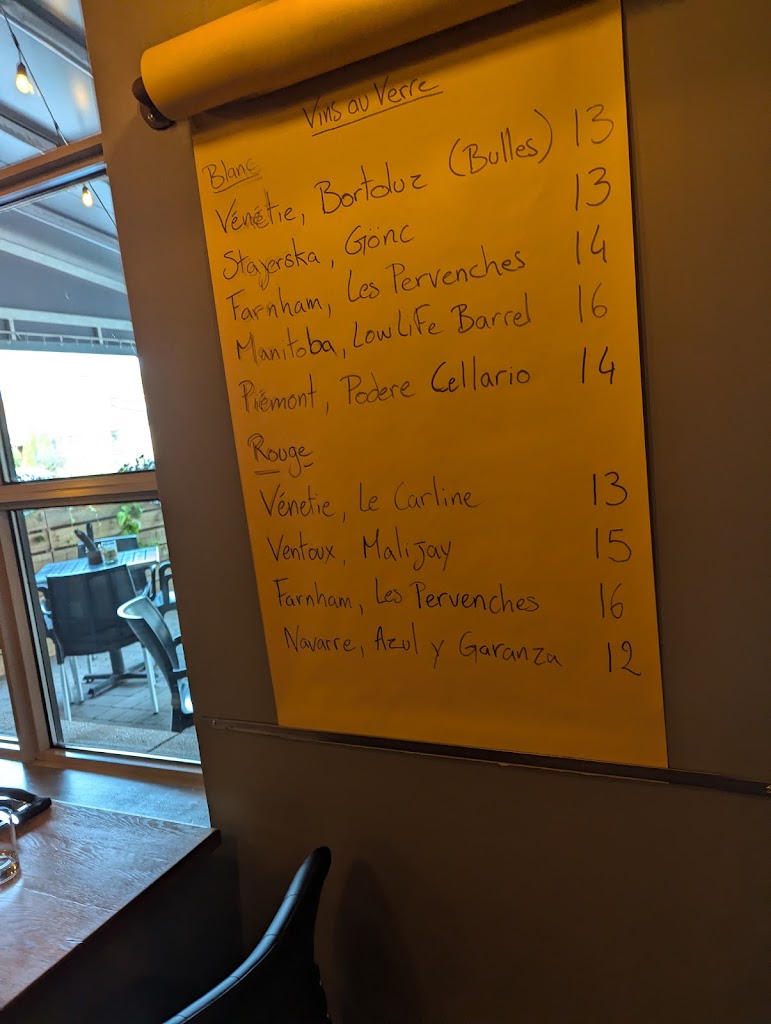 Vins au Verre
Blanc
Vénétie, Bortoluz (Bulles) 13
Stajerska, Gönc 13
Farnham, Les Pervenches 14
Manitoba, Low Life Barrel 16
Piémont, Podere Cellario 14
Rouge
Vénetie, Le Carline 13
Ventoux, Malijay 15
Farnham, Les Pervenches 16
Navarre, Azul y Garanza 12